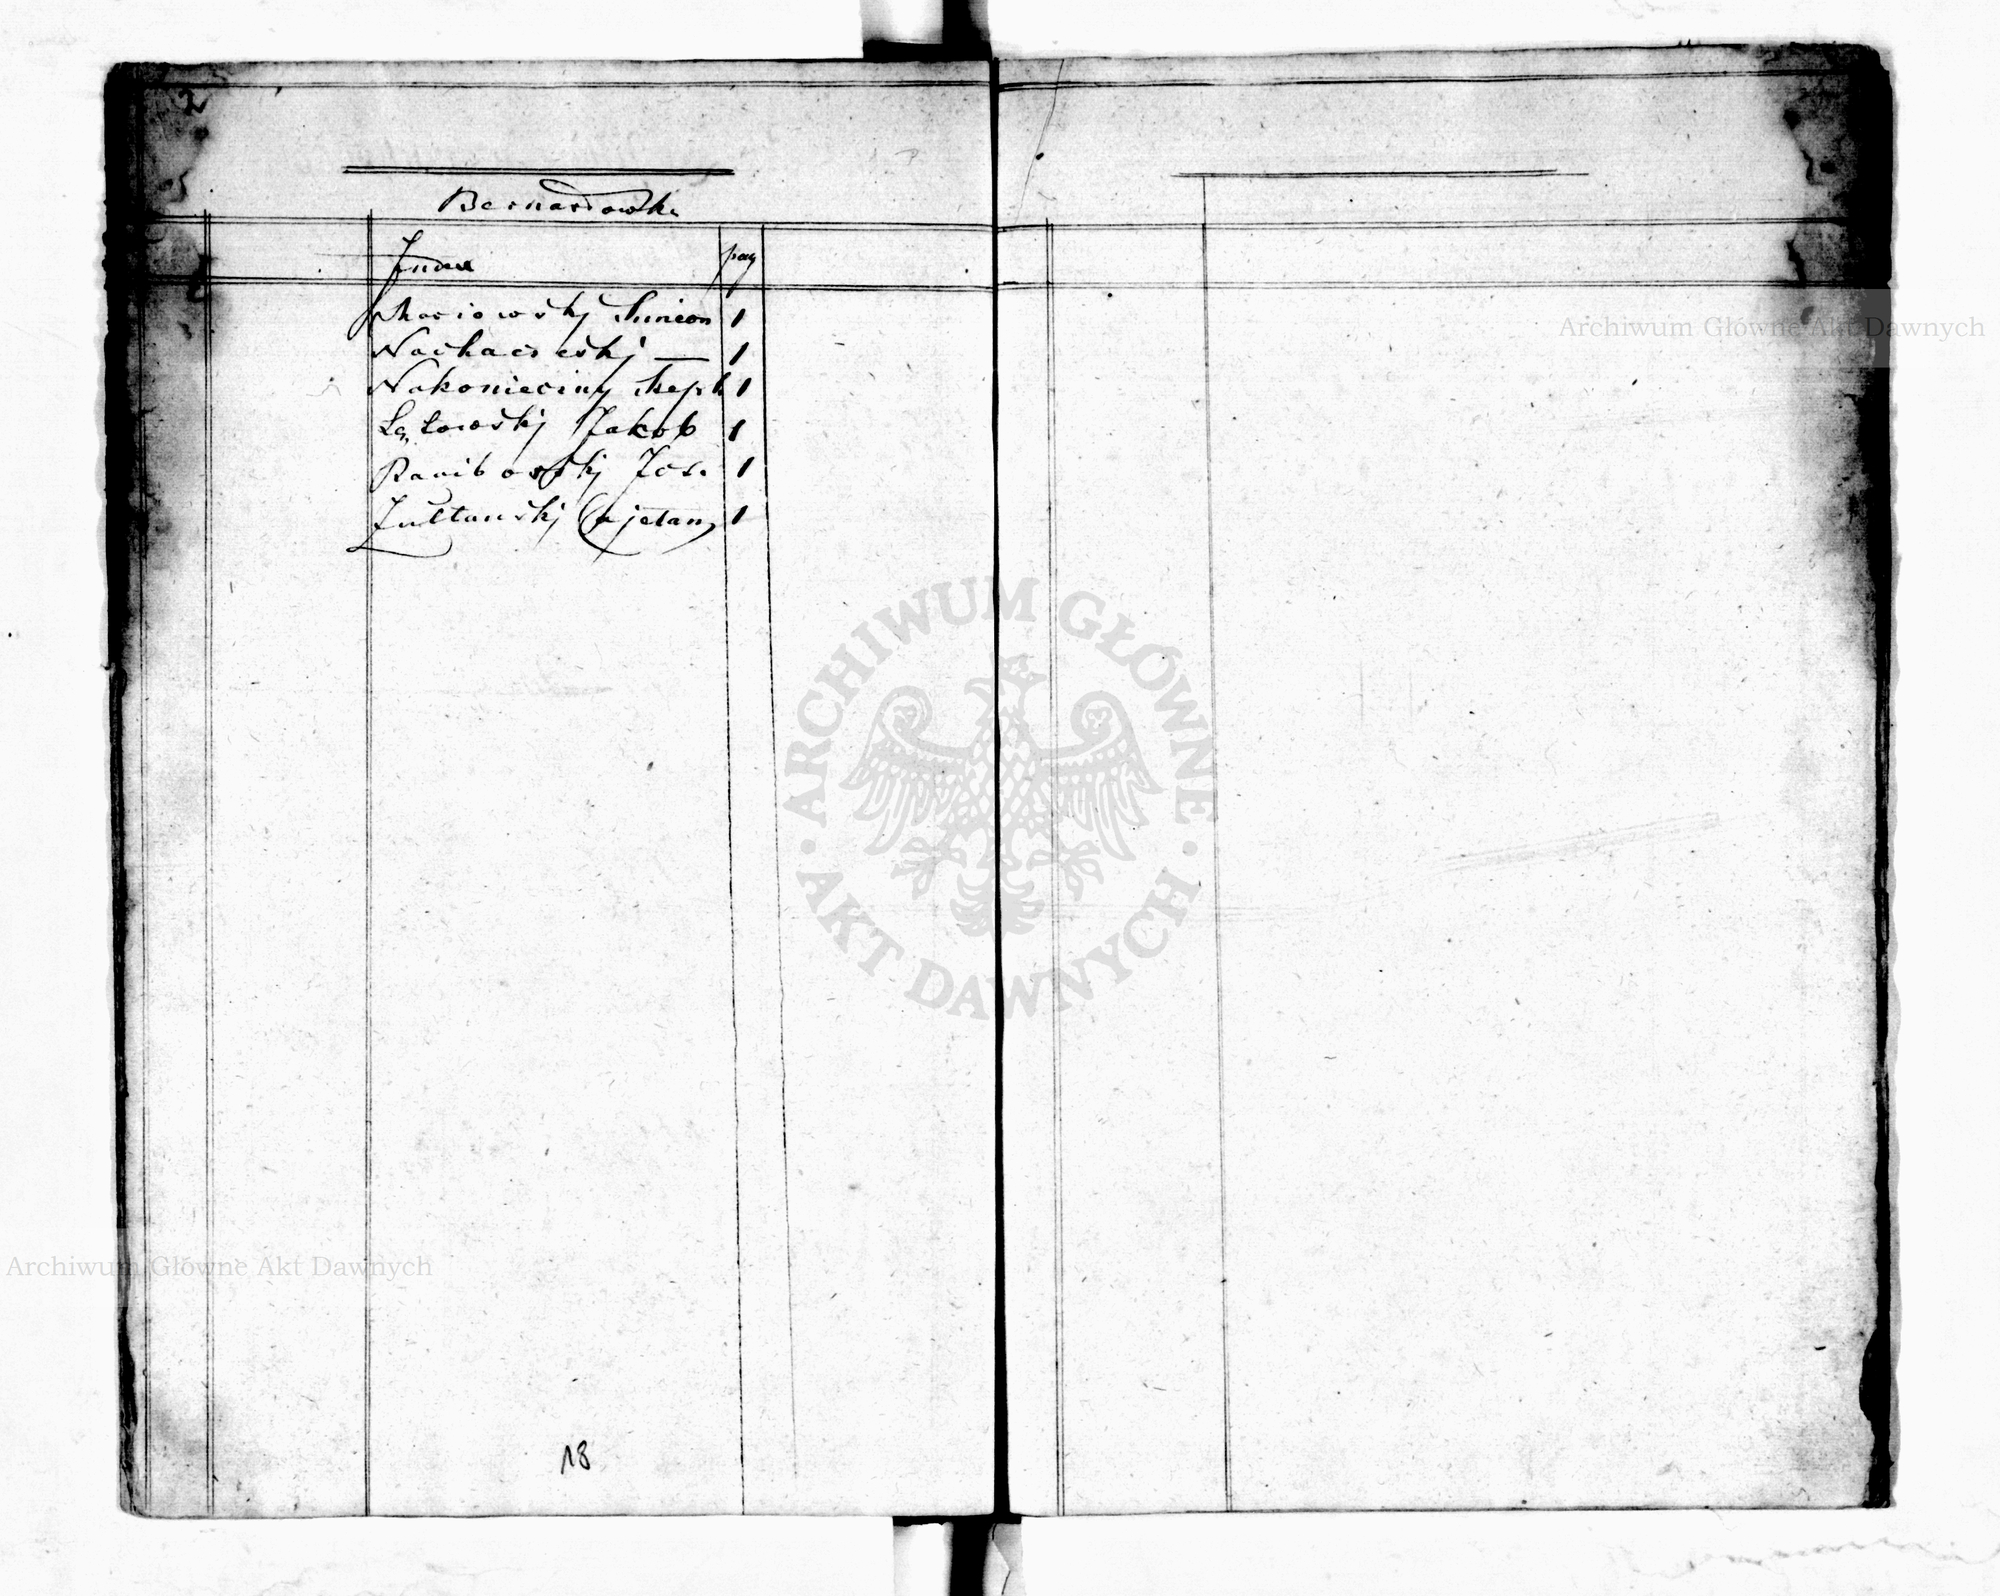 2
Bernardowka
Index pag
Maciowskj Simeon 1
Nachaczeskj — 1
Nakonieciny Steph 1
Lastowskj Jakob 1
Raciborskj Jos. 1
Zultanskj Cajetan 1
18
ARCHIWUM GŁÓWNE AKT DAWNYCH
Archiwum Główne Akt Dawnych
Archiwum Główne Akt Dawnych